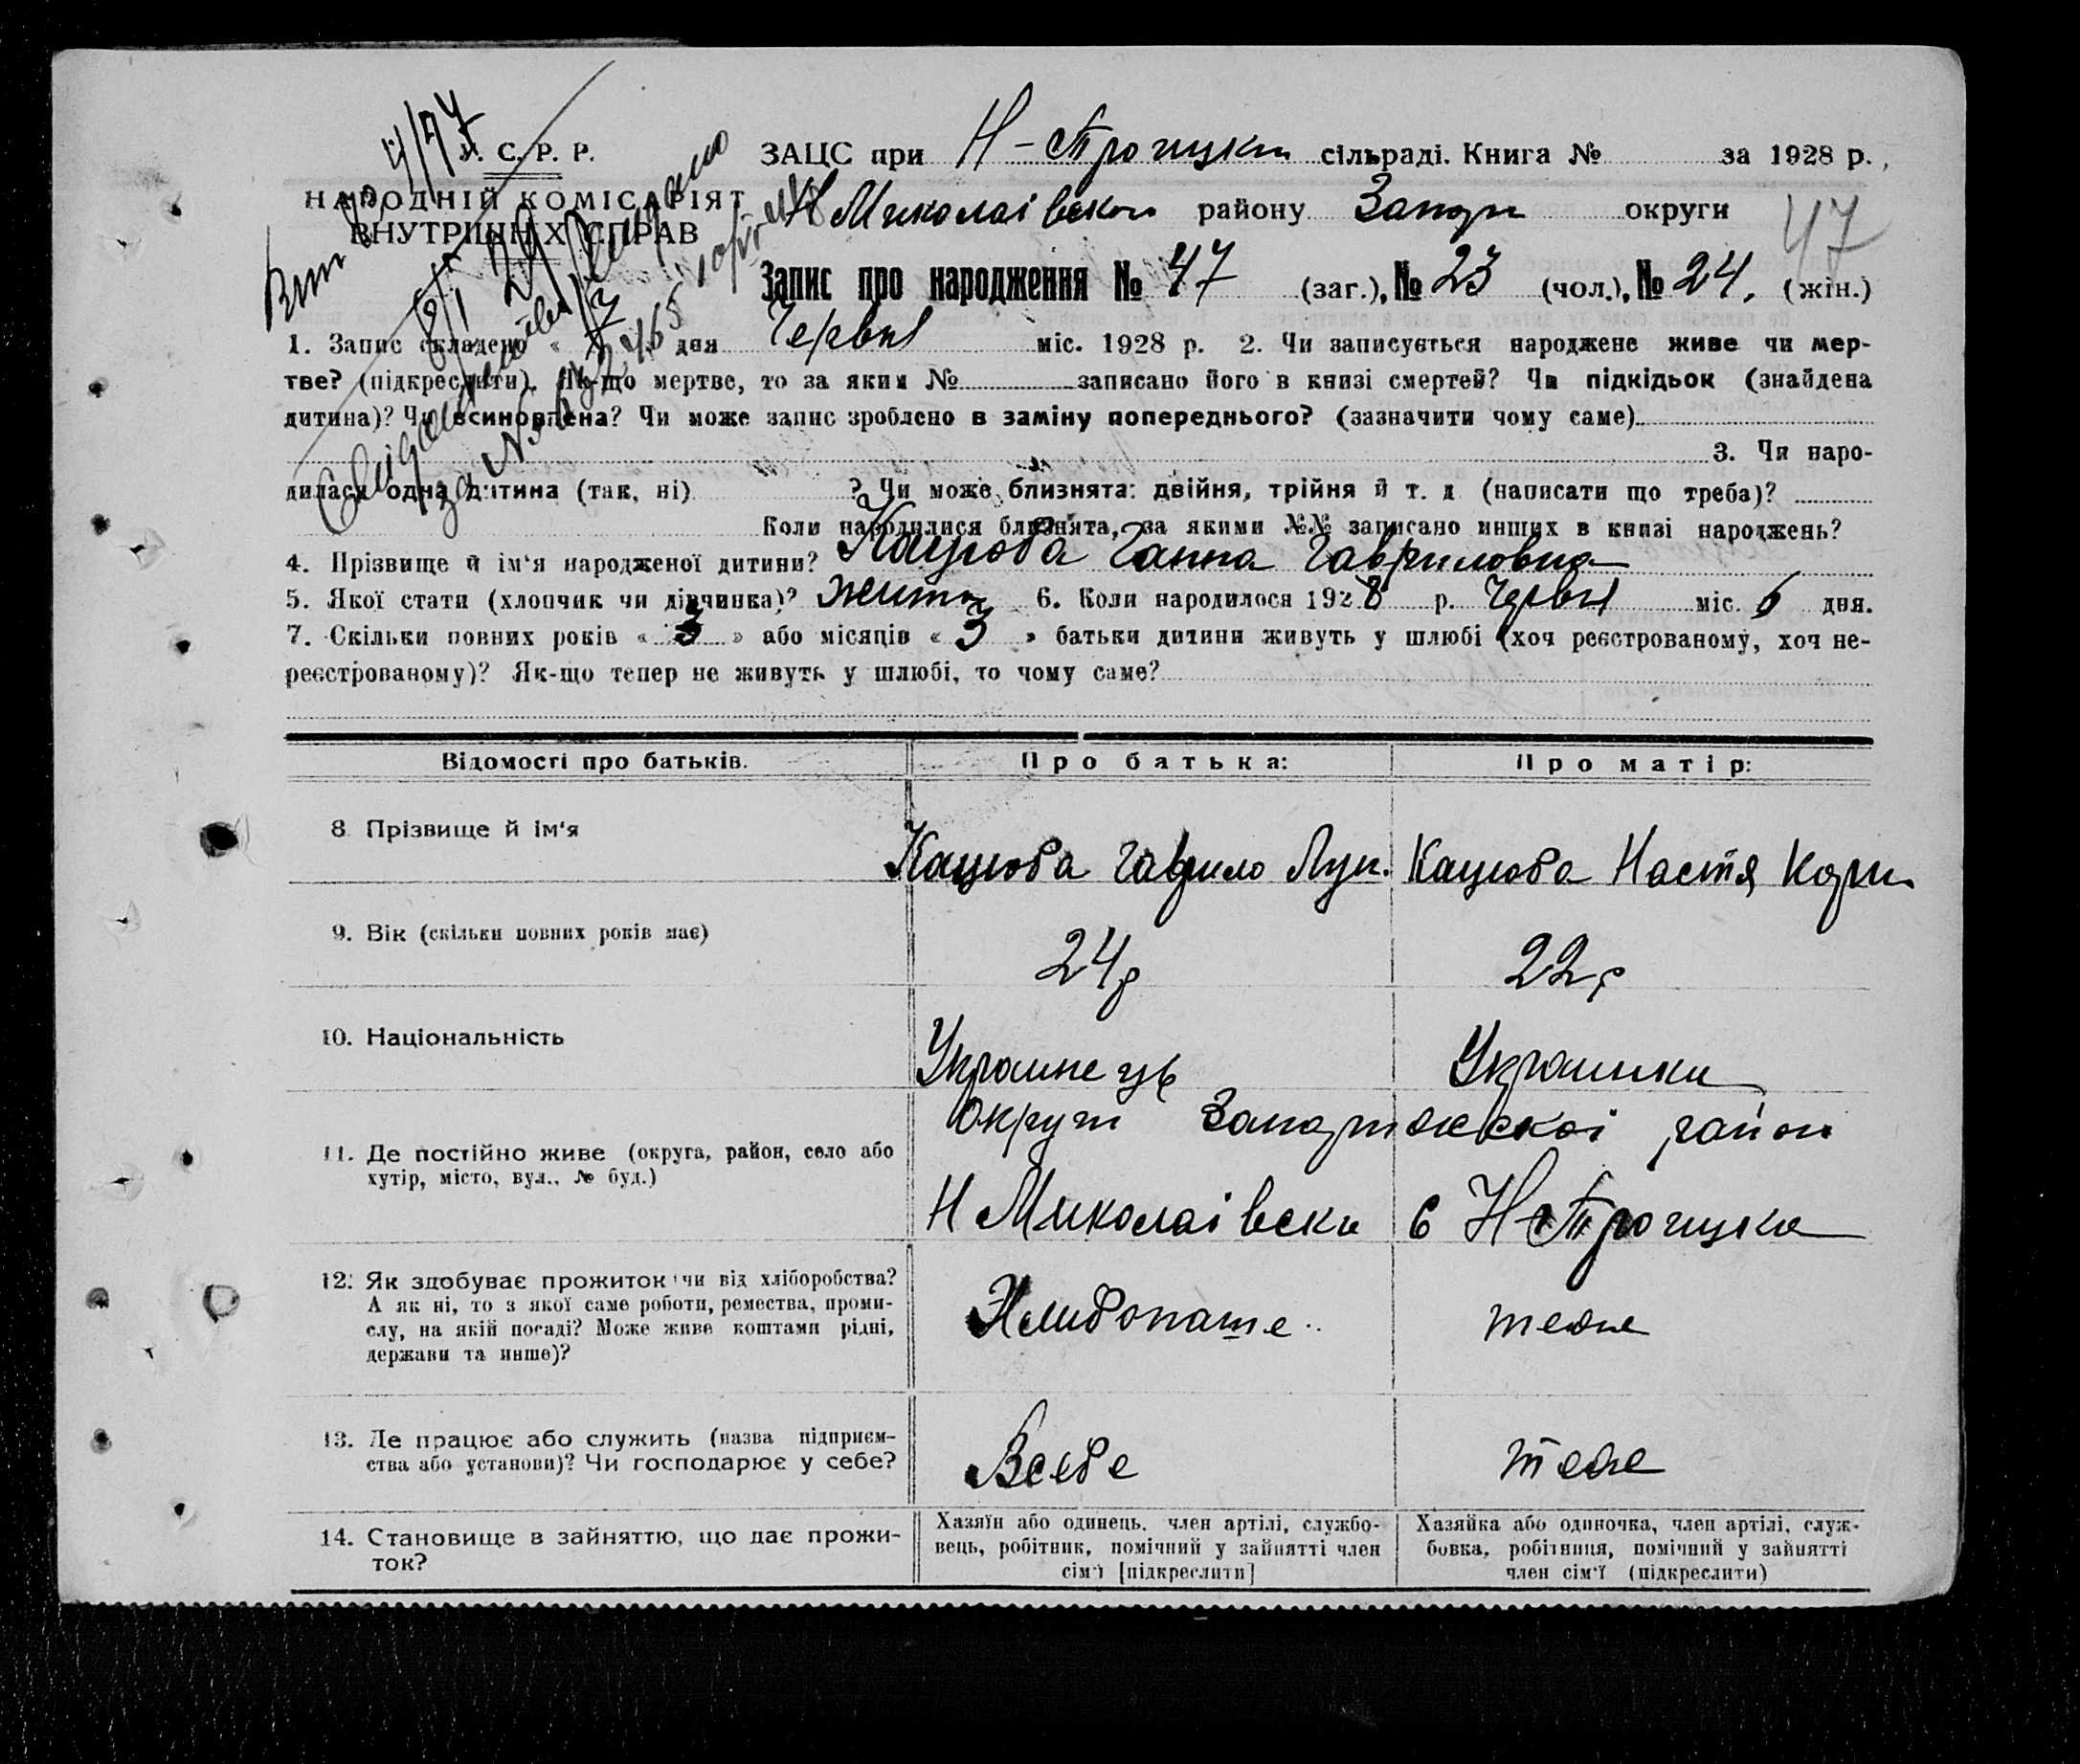 У. С. Р. Р.
НАРОДНІЙ КОМІСАРІЯТ
ВНУТРІШНІХ СПРАВ
ЗАЦС при Н-Троицкій сільраді. Книга № за 1928 р.
Н Миколаівском району Запор округи
47
Запис про народження № 47 (заг.), № 23 (чол.), № 24. (жін.)
1. Запис складено « 7 » дня Червня міс. 1928 р. 2. Чи записується народжене живе чи мер-
тве? (підкреслити). Як-що мертве, то за яким № записано його в книзі смертей? Чи підкідьок (знайдена
дитина)? Чи всиновлена? Чи може запис зроблено в заміну попереднього? (зазначити чому саме)
3. Чи наро-
дилася одна дитина (так, ні) ? Чи може близнята: двійня, трійня й т. д (написати що треба)?
Коли народилися близнята, за якими №№ записано инших в книзі народжень?
4. Прізвище й ім'я народженої дитини? Кацюба Ганна Гавриловна
5. Якої стати (хлопчик чи дівчинка)? 6. Коли народилося 1928 р. Червня міс. 6 дня.
7. Скільки повних років « 3 » або місяців « 3 » батьки дитини живуть у шлюбі (хоч реєстрованому, хоч не-
реєстрованому)? Як-що тепер не живуть у шлюбі, то чому саме?
Відомості про батьків. Про батька: Про матір:
8 Прізвище й ім'я Кацюба Гаврило Лук. Кацюба Настя Корн
9. Вік (скільки повних років має) 24 р 22 р
10. Національність Украинець Украинка
11. Де постійно живе (округа, район, село або
хутір, місто, вул., № буд.)
округи Запоріжскоі район
Н Миколаівски с Н-Троицке
12. Як здобуває прожиток чи від хліборобства?
А як ні, то з якої саме роботи, ремества, проми-
слу, на якій посаді? Може живе коштами рідні,
держави та инше)?
Хлибопаше теже
13. Де працює або служить (назва підприєм-
ства або установи)? Чи господарює у себе?
Всебе теже
14. Становище в зайняттю, що дає прожи-
ток?
Хазяїн або одинець. член артілі, службо-
вець, робітник, помічний у зайнятті член
сім'ї [підкреслити]
Хазяйка або одиночка, член артілі, служ-
бовка, робітниця, помічний у зайнятті
член сім'ї (підкреслити)